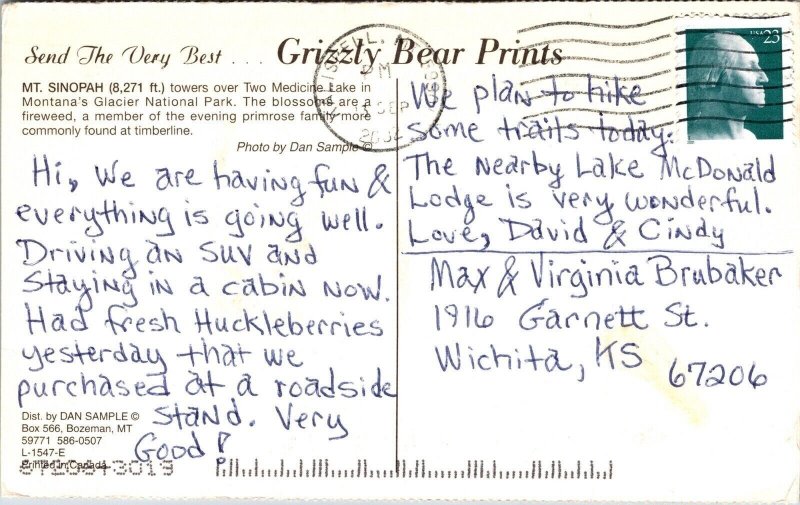 Send The Very Best . . . Grizzly Bear Prints
MT. SINOPAH (8,271 ft.) towers over Two Medicine Lake in
Montana's Glacier National Park. The blossoms are
fireweed, a member of the evening primrose family more
commonly found at timberline.
Photo by Dan Sample ©
Hi, We are having fun &
everything is going well.
Driving an SUV and
Staying in a cabin now.
Had fresh Huckleberries
yesterday that we
purchased at a roadside
stand. Very
Good!
Dist. by DAN SAMPLE ©
Box 566, Bozeman, MT
59771 586-0507
L-1547-E
Printed in Canada
PM
SEP
USA 23
We plan to hike
some trails today.
The nearby Lake McDonald
Lodge is very wonderful.
Love, David & Cindy
Max & Virginia Brubaker
1916 Garnett St.
Wichita, KS 67206